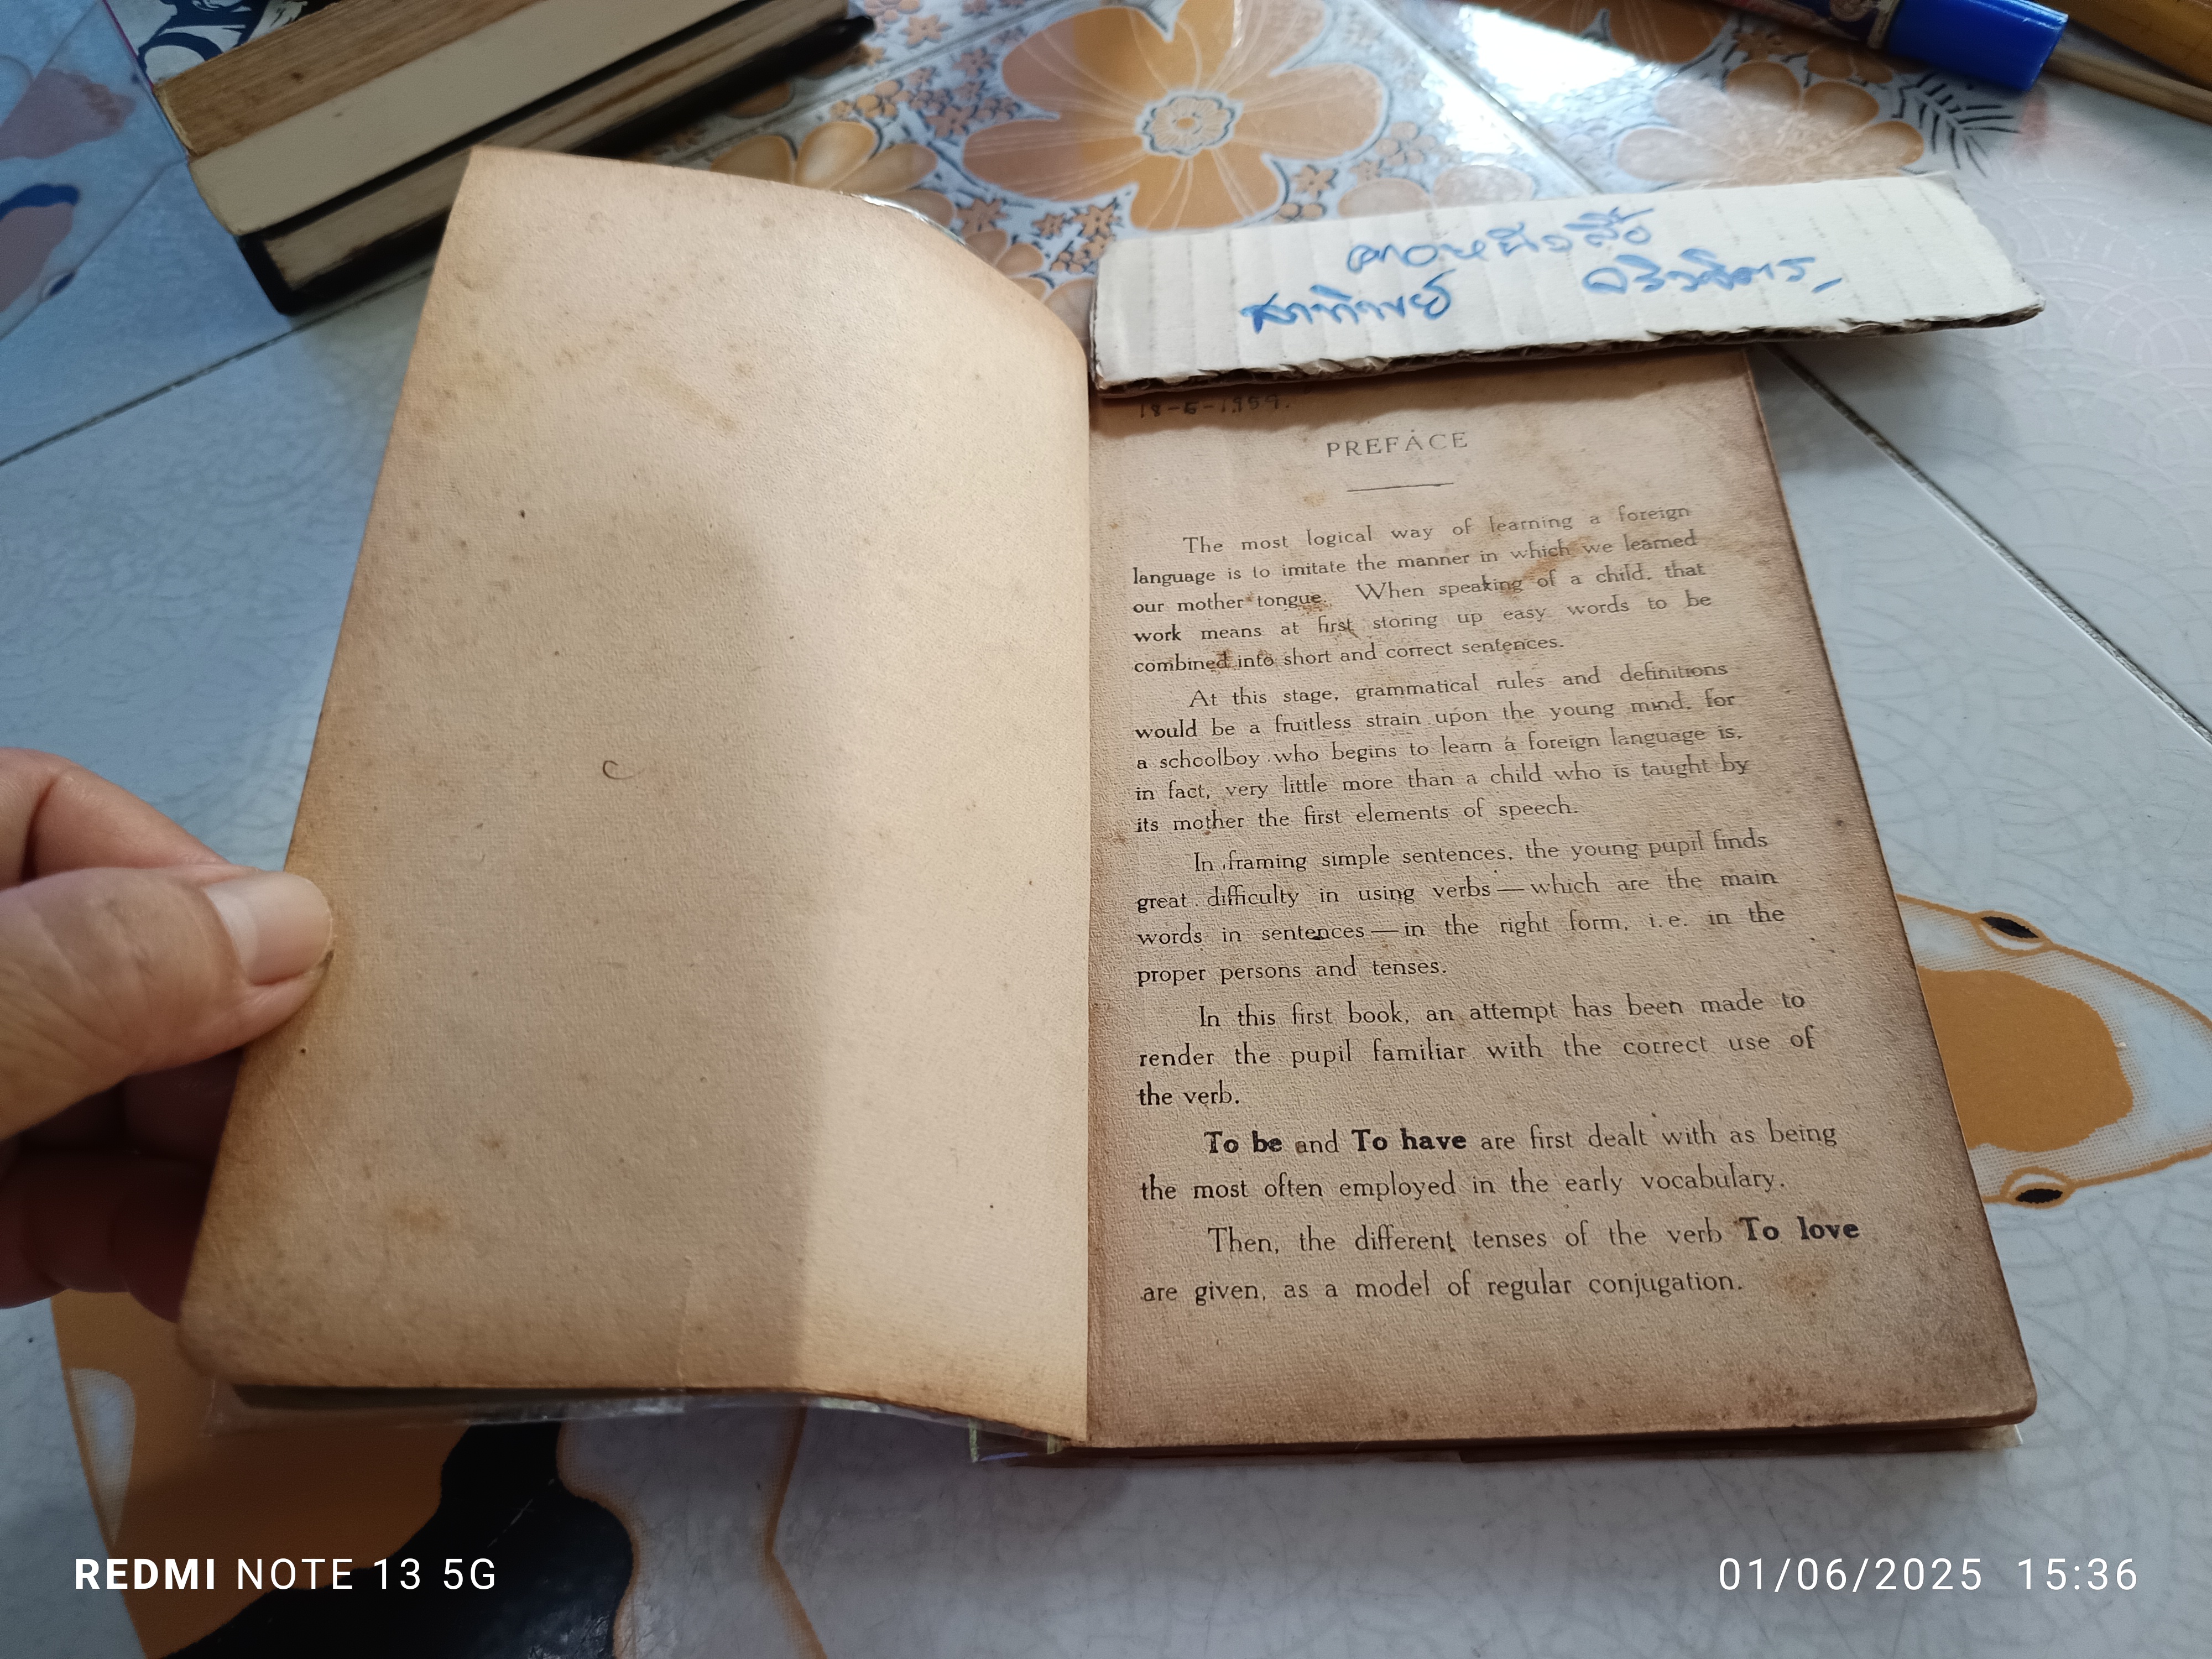 18-6-1959.
PREFACE
The most logical way of learning a foreign
language is to imitate the manner in which we learned
our mother tongue. When speaking of a child, that
work means at first storing up easy words to be
combined into short and correct sentences.
At this stage, grammatical rules and definitions
would be a fruitless strain upon the young mind, for
a schoolboy who begins to learn a foreign language is,
in fact, very little more than a child who is taught by
its mother the first elements of speech.
In framing simple sentences, the young pupil finds
great difficulty in using verbs — which are the main
words in sentences — in the right form, i. e. in the
proper persons and tenses.
In this first book, an attempt has been made to
render the pupil familiar with the correct use of
the verb.
To be and To have are first dealt with as being
the most often employed in the early vocabulary.
Then, the different tenses of the verb To love
are given, as a model of regular conjugation.
REDMI NOTE 13 5G
01/06/2025 15:36